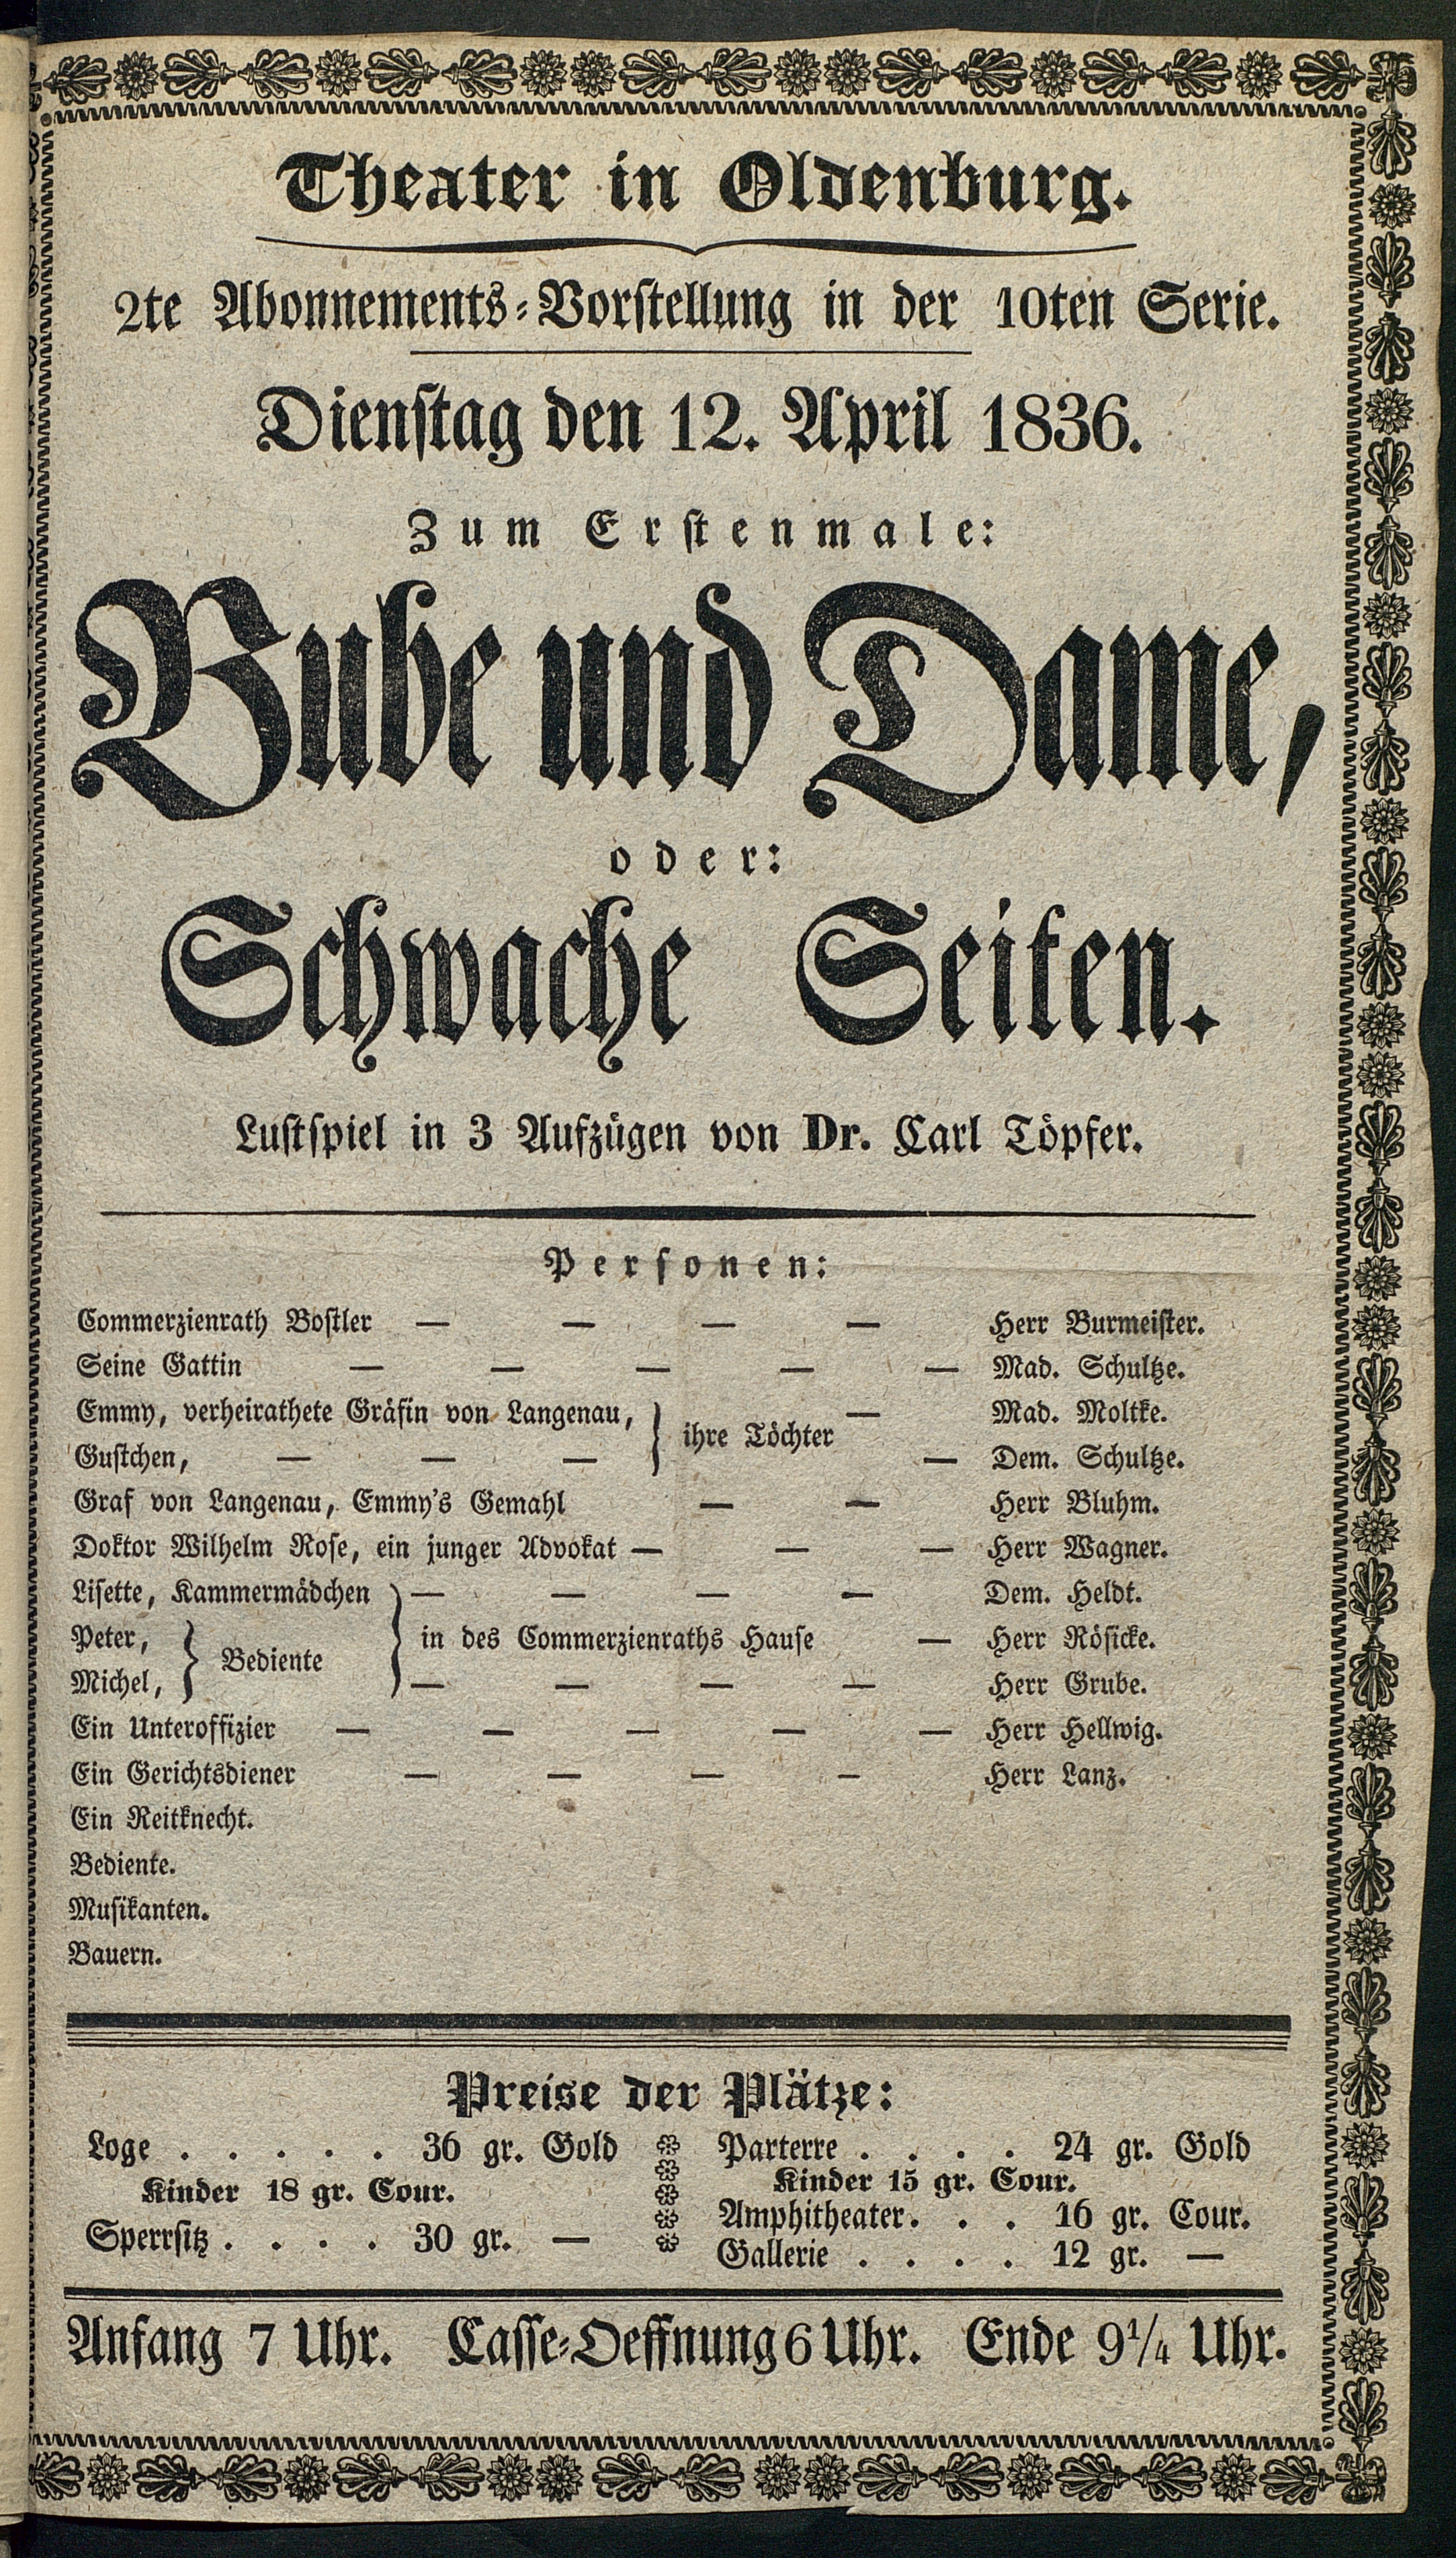 Theater in Oldenburg.
2te Abonnements-Vorstellung in der 10ten Serie.
Dienstag den 12. April 1836.
Zum Erstenmale:
Bube und Dame,
oder:
Schwache Seiten.
Lustspiel in 3 Aufzügen von Dr. Carl Töpfer.
Personen:
Commerzienrath Bostler — — — — Herr Burmeister.
Seine Gattin — — — — — Mad. Schultze.
Emmy, verheirathete Gräfin von Langenau, — Mad. Moltke.
} ihre Töchter
Gustchen, — — — — Dem. Schultze.
Graf von Langenau, Emmy's Gemahl — — Herr Bluhm.
Doktor Wilhelm Rose, ein junger Advokat — — — Herr Wagner.
Lisette, Kammermädchen — — — — Dem. Heldt.
Peter, } in des Commerzienraths Hause — Herr Rösicke.
} Bediente
Michel, — — — — Herr Grube.
Ein Unteroffizier — — — — — Herr Hellwig.
Ein Gerichtsdiener — — — — Herr Lanz.
Ein Reitknecht.
Bediente.
Musikanten.
Bauern.
Preise der Plätze:
Loge . . . . . 36 gr. Gold
Kinder 18 gr. Cour.
Sperrsitz . . . . 30 gr. —
Parterre . . . . 24 gr. Gold
Kinder 15 gr. Cour.
Amphitheater . . . 16 gr. Cour.
Gallerie . . . . 12 gr. —
Anfang 7 Uhr. Casse-Oeffnung 6 Uhr. Ende 9 1/4 Uhr.